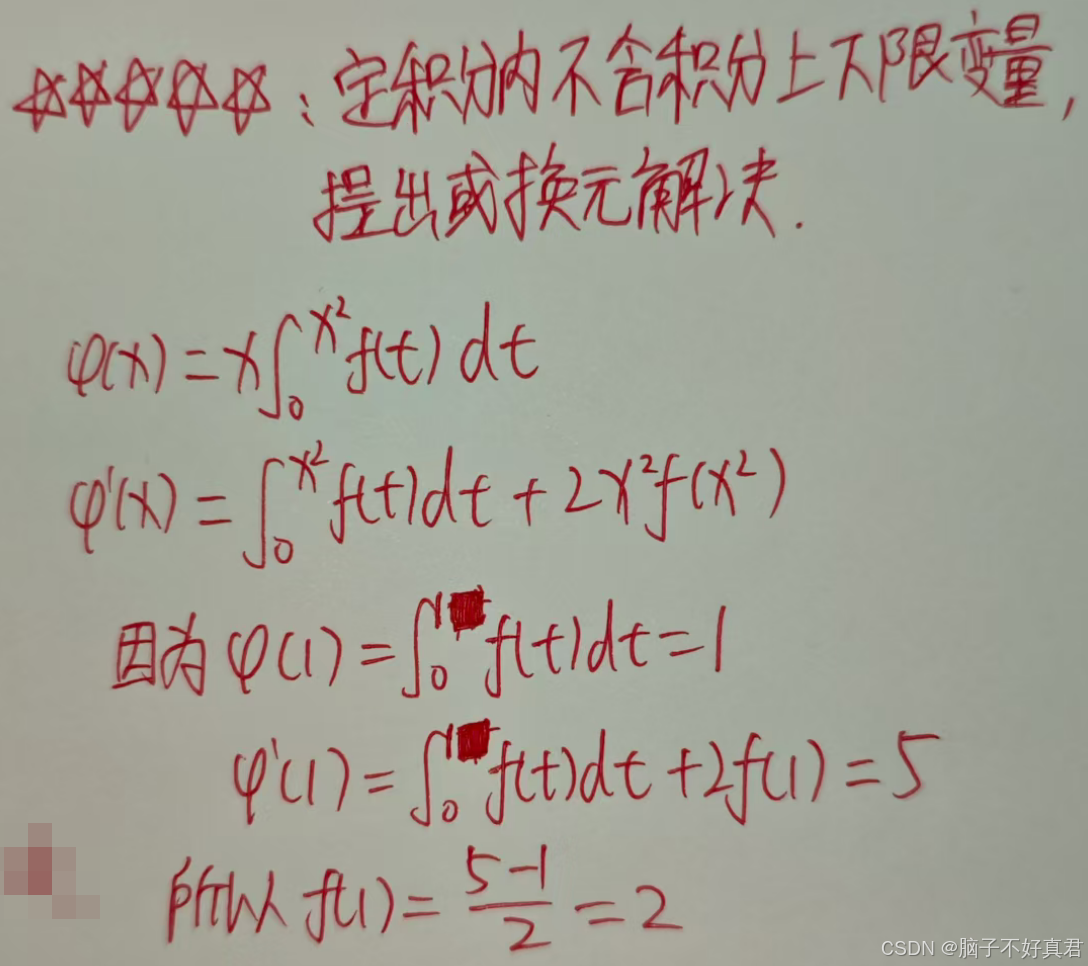 ☆☆☆☆☆：定积分内不含积分上下限变量，
提出或换元解决．
φ(x)=x∫₀^{x²}f(t)dt
φ'(x)=∫₀^{x²}f(t)dt+2x²f(x²)
因为φ(1)=∫₀^{1}f(t)dt=1
φ'(1)=∫₀^{1}f(t)dt+2f(1)=5
所以f(1)=\frac{5-1}{2}=2
CSDN @脑子不好真君